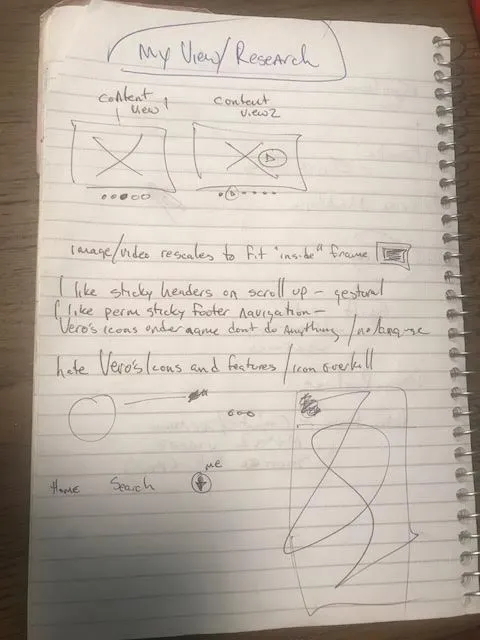 My View/Research
content view 1
content view 2
image/video rescales to fit "inside" frame
I like sticky headers on scroll up - gestural
I like perm sticky footer navigation -
Vero's icons under name dont do Anything /no language
hate Vero's Icons and features/icon overkill
me
Home Search